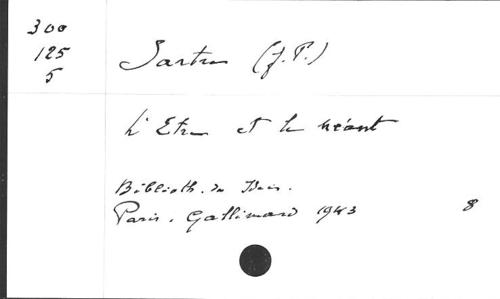 300
125
5
Sartre (J.P.)
L'Etre et le néant
Biblioth. des Idées.
Paris. Gallimard 1943 8